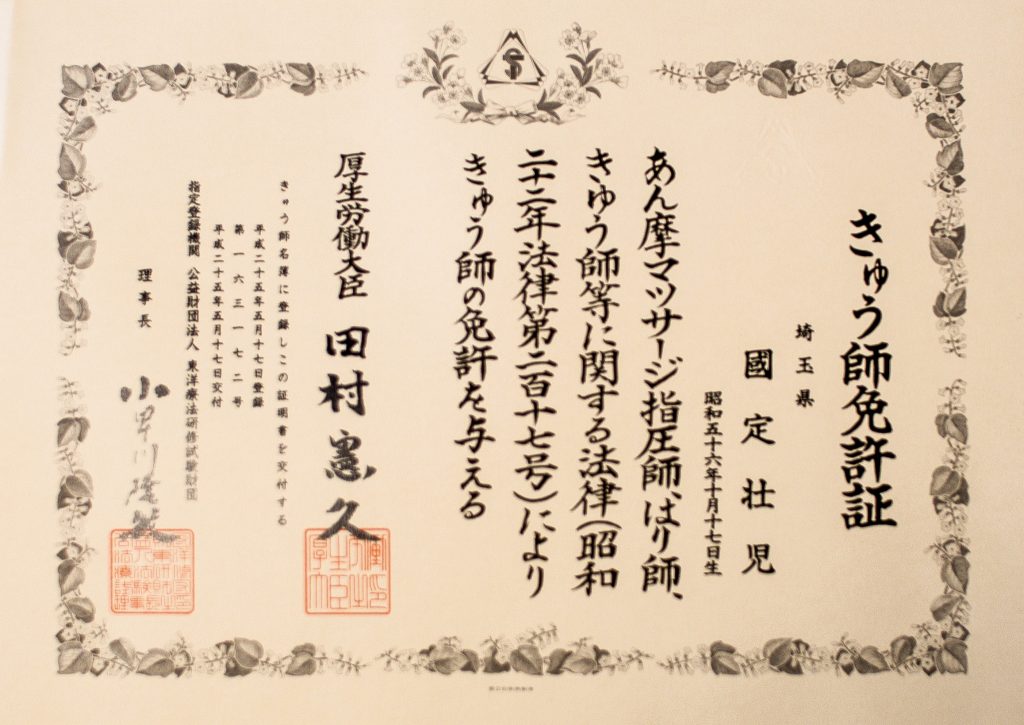 きゅう師免許証
埼玉県
國定壮児
昭和五十六年十月十七日生
あん摩マツサージ指圧師、はり師、
きゆう師等に関する法律(昭和
二十二年法律第二百十七号)により
きゅう師の免許を与える
厚生労働大臣 田村憲久
きゅう師名簿に登録しこの証明書を交付する
平成二十五年五月十七日登録
第一六三一七二号
平成二十五年五月十七日交付
指定登録機関 公益財団法人 東洋療法研修試験財団
理事長